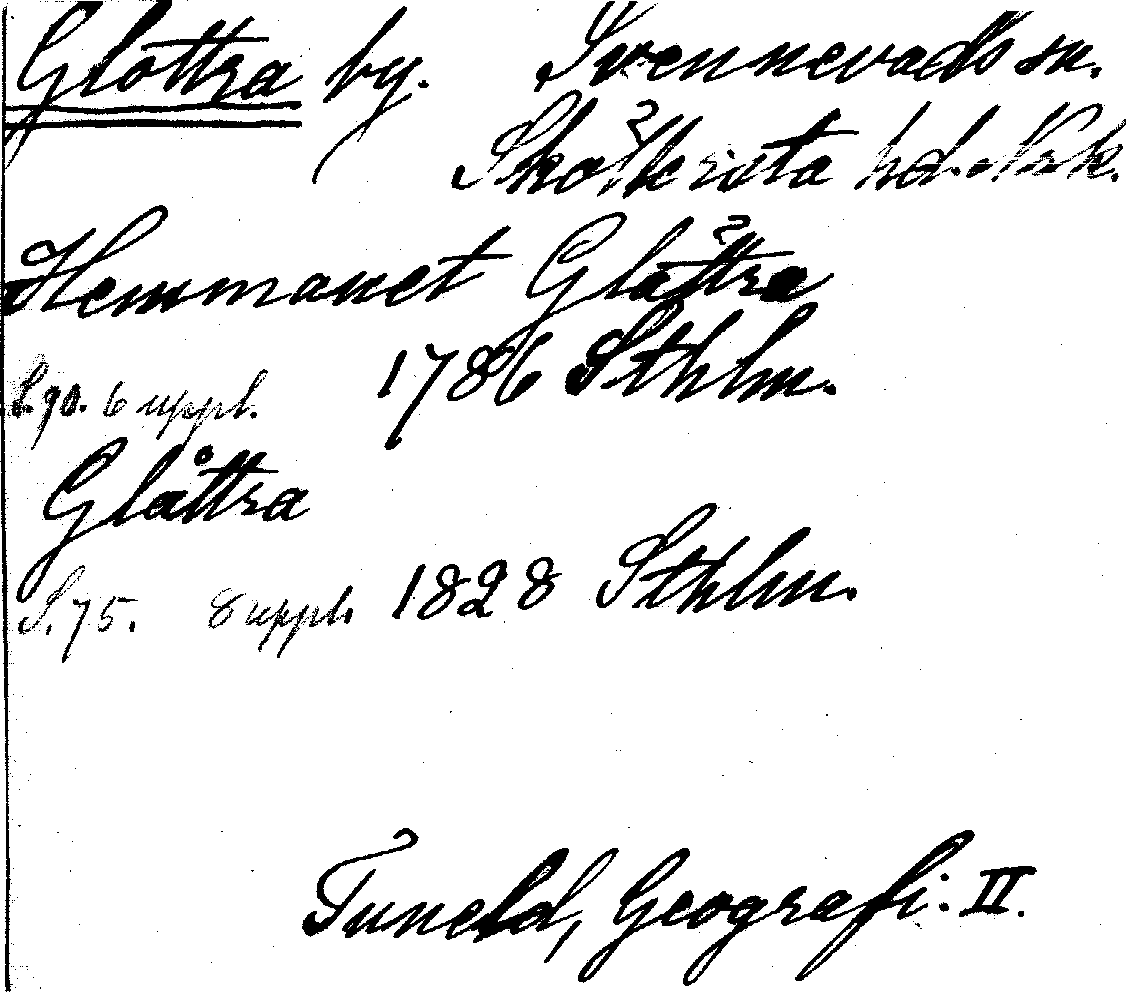 Glottra by. Svennevads sn.
Sköllersta hd. Nrk.
Hemmanet Glåttra
S. 90. 6 uppl. 1786 Sthlm.
Glåttra
S. 75. 8 uppl. 1828 Sthlm.
Tuneld, Geografi. II.